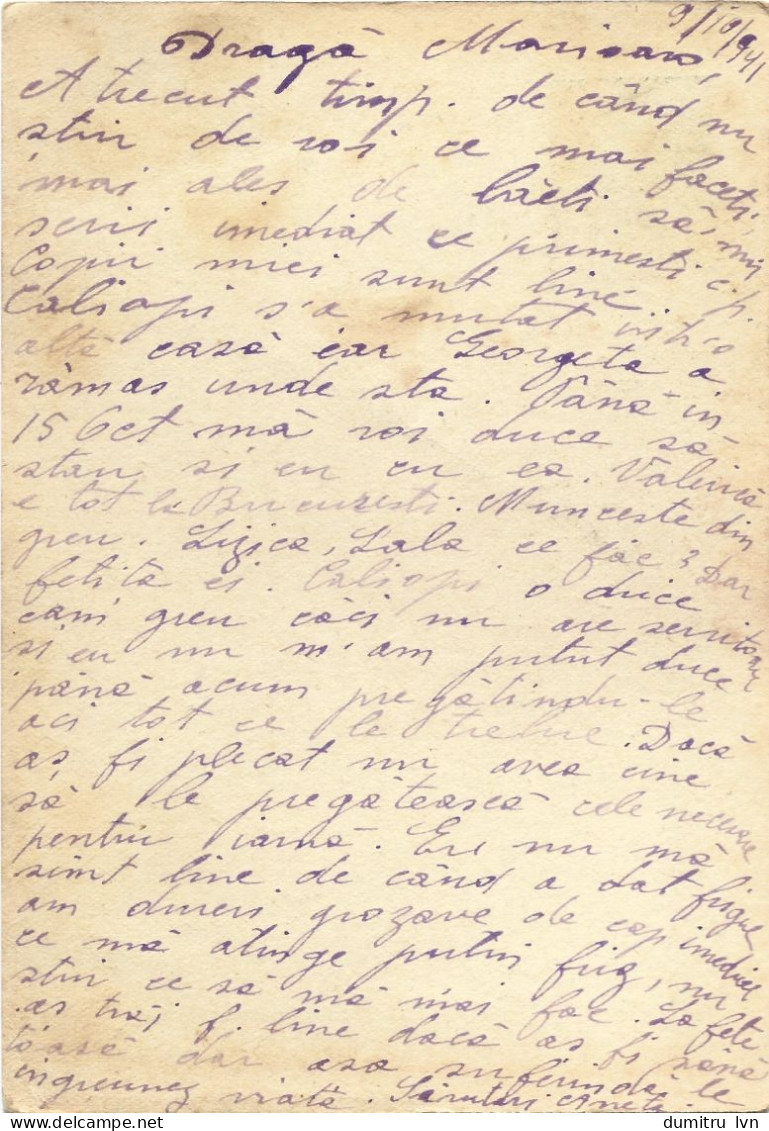 9/10/941
Dragă Marioaro,
A trecut timp. de când nu
stiu de voi ce mai faceti,
mai ales de băeti să'mi
scrii imediat ce primesti c.p.
Copiii mici sunt bine
Caliopi s'a mutat intr'o
altă casă iar Georgeta a
rămas unde sta. Până in
15 Oct mă voi duce să
stau si eu cu ea. Vălenică
e tot la Bucuresti. Munceste din
greu. Lizica, Lala ce fac? Dar
fetita ei. Caliopi o duce
cam greu căci nu are servitoare
si eu nu m'am putut duce
până acum pregătindu-le
aci tot ce le trebue. Dacă
as fi plecat nu avea cine
să le pregătească cele necesare
pentru iarnă. Eu nu mă
simt bine de când a dat frigul
am dureri grozave de cap imediat
ce mă atinge putin frig, nu
stiu ce să mă mai fac. La fete
as trăi f. bine dacă as fi sănă
toasă dar asa suferindă le
ingreunez viata. Sărutări Aneta.
dumitru lvn